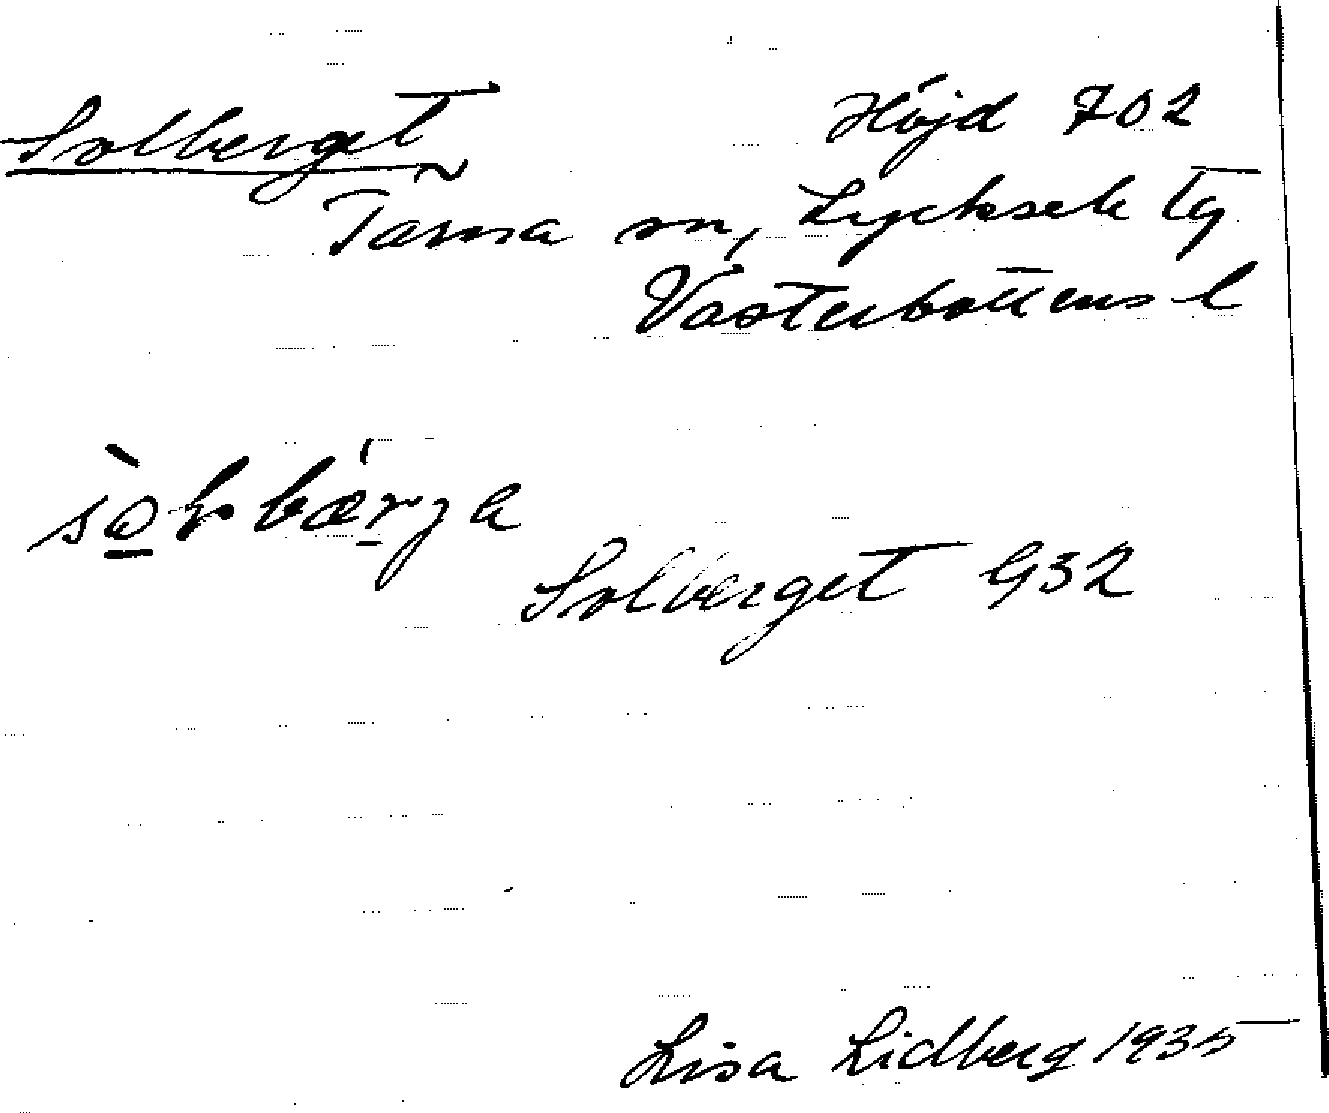 Solberget Höjd 702
Tärna sn, Lycksele tg
Västerbottens l
Solberget G32
Lisa Lidberg 1935